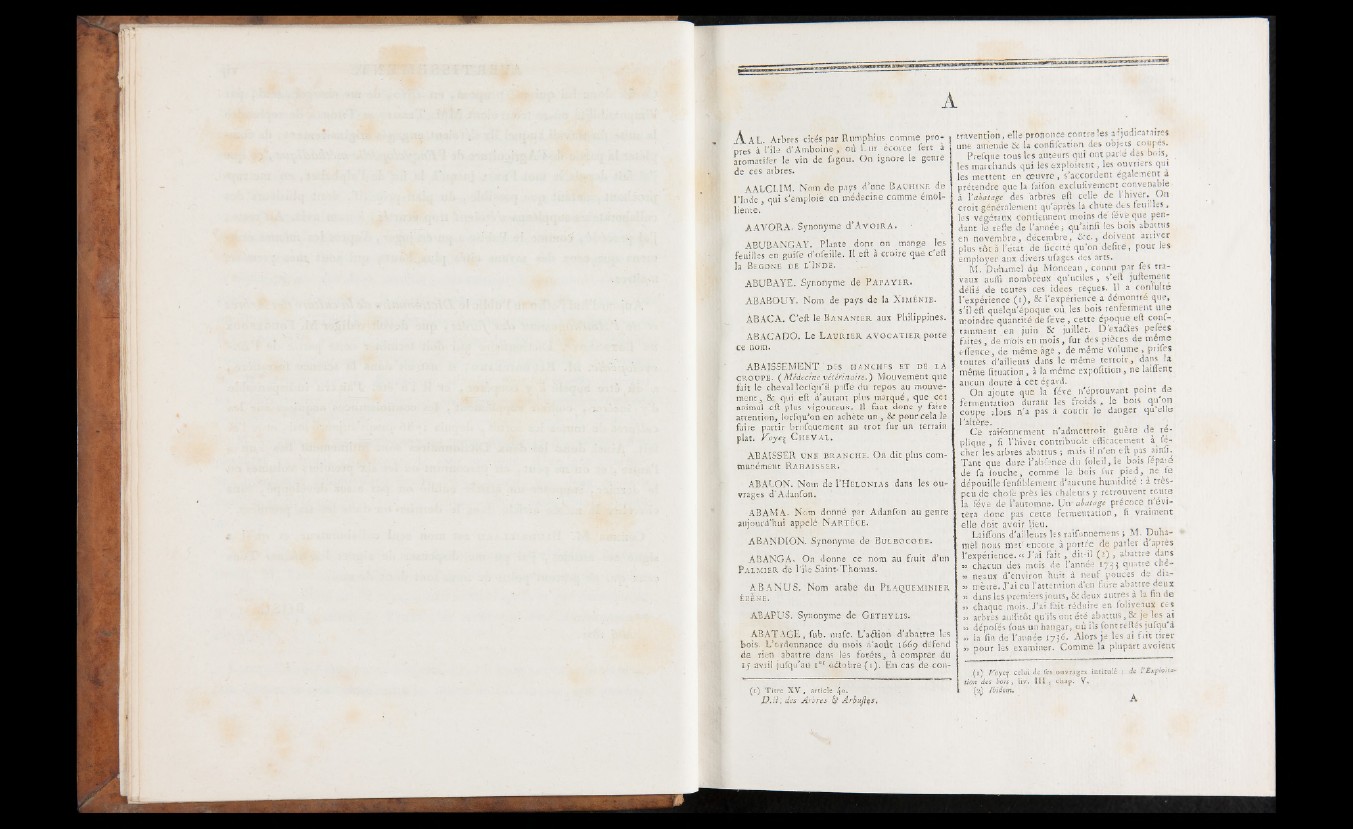 A
AAL. Arbres cités par Rumphius comme pro-
pres à l'île d'Amboine, où leur écorce sert à
aromatiser le vin de sagou. On ignore le genre
de ces arbres.
AALCLIM. Nom de pays d'une BAUHINE de
l'Inde, qui s'emploie en médecine comme émol-
liente.
AAVORA. Synonyme d'AVOIRA.
ABUBANGAY. Plante dont on mange les
feuilles en guise d'oseille. Il est à croire que c'est
la BEGONE DE L'INDE.
ABUBAYE. Synonyme de PAPAYER.
ABABOUY. Nom de pays de la XIMÉNIE.
ABACA. C'est le BANANIER aux Philippines.
ABACADO. Le LAURIER AVOCATIER porte
ce nom.
ABAISSEMENT DES HANCHES ET DE LA
CROUPE. (Médecine vétérinaire.) Mouvement que
fait le cheval lorsqu'il passe du repos au mouve-
ment, & qui est d'autant plus marqué, que cet
animal est plus vigoureux. Il faut donc y faire
attention, lorsqu'on en achète un, & pour cela le
faire partir brusquement au trot sur un terrain
plat. Voyez CHEVAL.
ABAISSER UNE BRANCHE. On dit plus com-
munément RABAISSER.
ABALON. Nom de l'HELONIAS dans les ou-
vrages d'Adanson.
ABAMA. Nom donné par Adanson au genre
aujourd'hui appelé NARTÈCE.
ABANDION. Synonyme de BULBOCODE.
ABANGA. On donne ce nom au fruit d'un
PALMIER de l'île Saint-Thomas.
ABANUS. Nom arabe du PLAQUEMINIER
ÉBÈNE.
ABAPUS. Synonyme de GETHYLIS.
ABATAGE, sub. masc. L'action d'abattre les
bois. L'ordonnance du mois d'août 1669 défend
de rien abattre dans les forêts, à compter du
15 avril jusqu'au 1er octobre (1). En cas de con-
(1) Titre XV, article 40.
Dict. des Arbres & Arbustes.
travention, elle prononce contre les adjudicataires
une amende & la confiscation des objets coupés.
Presque tous les auteurs qui ont parlé des bois,
les marchands qui les exploitent, les ouvriers qui
les mettent en œuvre, s'accordent également à
prétendre que la saison exclusivement convenable
à l'abatage des arbres est celle de l'hiver. On
croit généralement qu'après la chute des feuilles,
les végétaux contiennent moins de sève que pen-
dant le reste de l'année; qu'ainsi les bois abattus
en novembre, décembre, &c., doivent arriver
plus tôt à l'état de siccité qu'on desire, pour les
employer aux divers usages des arts.
M. Duhamel du Monceau, connu par ses tra-
vaux aussi nombreux qu'utiles, s'est justement
défié de toutes ces idées reçues. Il a consulté
l'expérience (1), & l'expérience a démontré que,
s'il est quelqu'époque où les bois renferment une
moindre quantité de sève, cette époque est cons-
tamment en juin & juillet. D'exactes pesées
faites, de mois en mois, sur des pièces de même
essence, de même âge, de même volume, prises
toutes d'ailleurs dans le même terroir, dans la
même situation, à la même exposition, ne laissent
aucun doute à cet égard.
On ajoute que la sève n'éprouvant point de
fermentation durant les froids, le bois qu'on
coupe alors n'a pas à courir le danger qu'elle
l'altère.
Ce raisonnement n'admettroit guère de ré-
plique, si l'hiver contribuoit efficacement à sé-
cher les arbres abattus; mais il n'en est pas ainsi.
Tant que dure l'absence du soleil, le bois séparé
de sa souche, comme le bois sur pied, ne se
dépouille sensiblement d'aucune humidité : à très-
peu de chose près les chaleurs y retrouvent toute
la sève de l'automne. Un abatage précoce n'évi-
tera donc pas cette fermentation, si vraiment
elle doit avoir lieu.
Laissons d'ailleurs les raisonnemens; M. Duha-
mel nous met encore à portée de parler d'après
l'expérience. « J'ai fait, dit-il (2), abattre dans
» chacun des mois de l'année 1733 quatre chê-
» neaux d'environ huit à neuf pouces de dia-
» mètre. J'ai eu l'attention d'en faire abattre deux
» dans les premiers jours, & deux autres à la fin de
» chaque mois. J'ai fait réduire en soliveaux ces
» arbres aussitôt qu'ils ont été abattus, & je les ai
» déposés sous un hangar, où ils sont restés jusqu'à
» la fin de l'année 1736. Alors je les ai fait tirer
» pour les examiner. Comme la plupart avoient
(1) Voyez celui de ses ouvrages intitulé : de l'Exploita-
tion des bois, liv. III, chap. V.
(2) Ibidem.
A